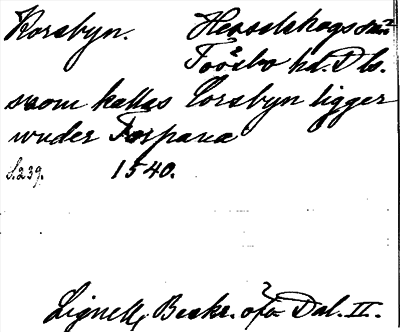 Korsbyn. Hesselskogs sn
Tössbo hd. Dls.
som kallas Corsbyn ligger
under Torpana
S.239. 1540.
Lignell, Beskr. öfv. Dal. II.